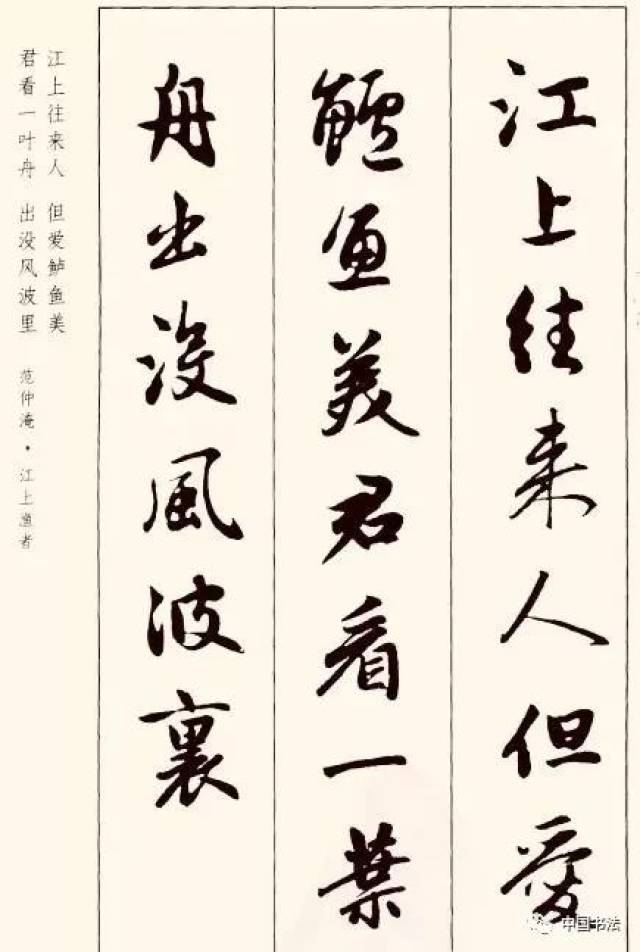 江上往来人但愛
鱸魚美君看一葉
舟出没風波裏
江上往来人 但爱鲈鱼美
君看一叶舟 出没风波里
范仲淹·江上渔者
中国书法